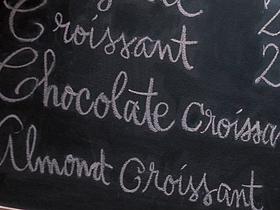 Croissant 2
Chocolate Croissa
Almond Croissant